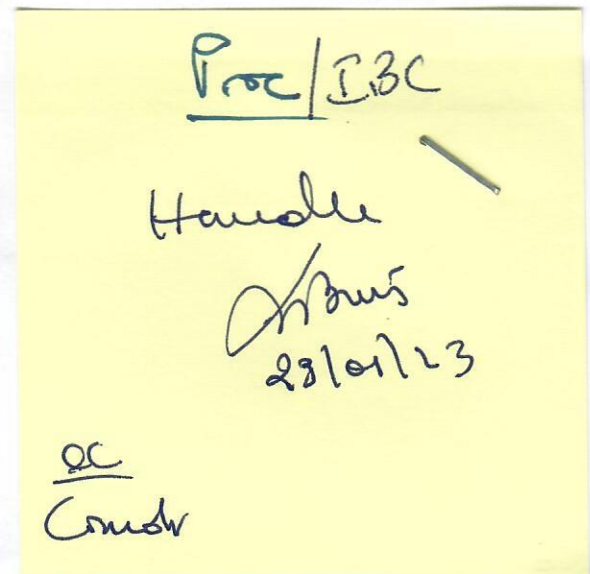 Proc/IBC
Handle
29/01/23
cc
Comdr